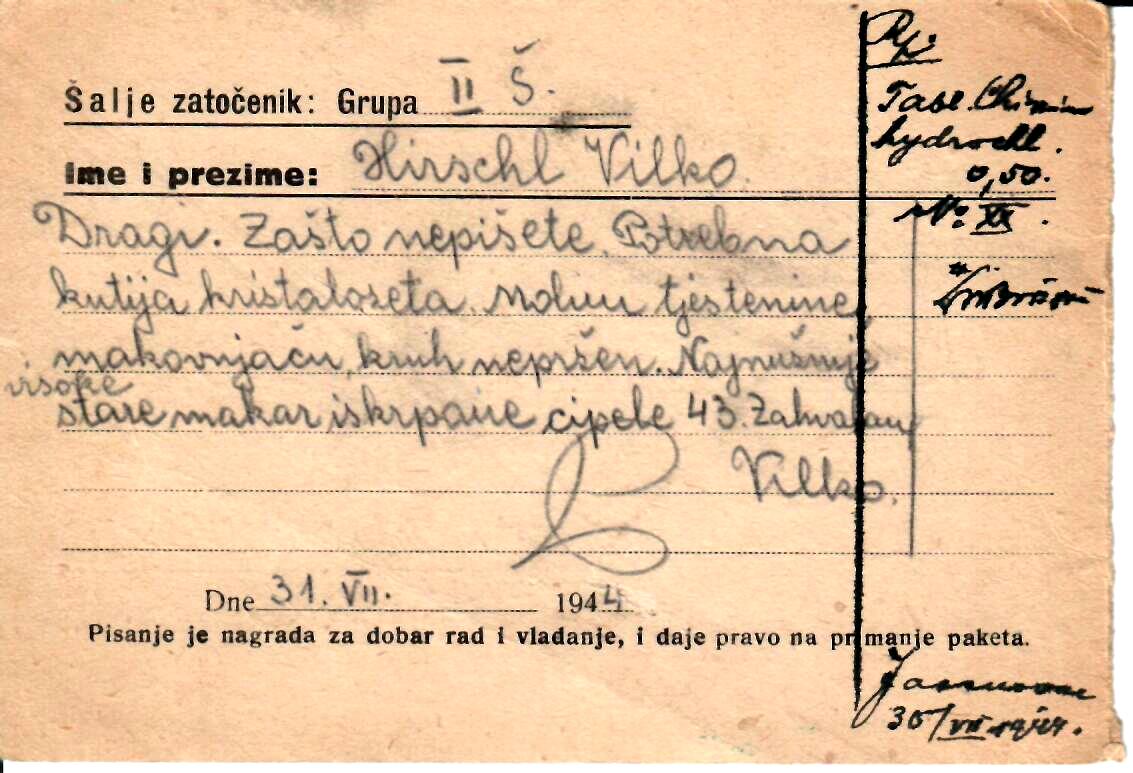 Šalje zatočenik: Grupa II Š.
Ime i prezime: Hirschl Vilko.
Dragi. Zašto nepišete. Potrebna
kutija kristaloseta. Molim tjestenine,
makovnjaču, kruh nepršen. Najnužnije
visoke
stare makar iskrpane cipele 43. Zahvalan
Vilko.
Dne 31. VII. 1944
Pisanje je nagrada za dobar rad i vladanje, i daje pravo na primanje paketa.
Rp.
Tabl. Chinin
hydrochl.
0,50.
No XX.
Jasenovac
30/VII 1944.